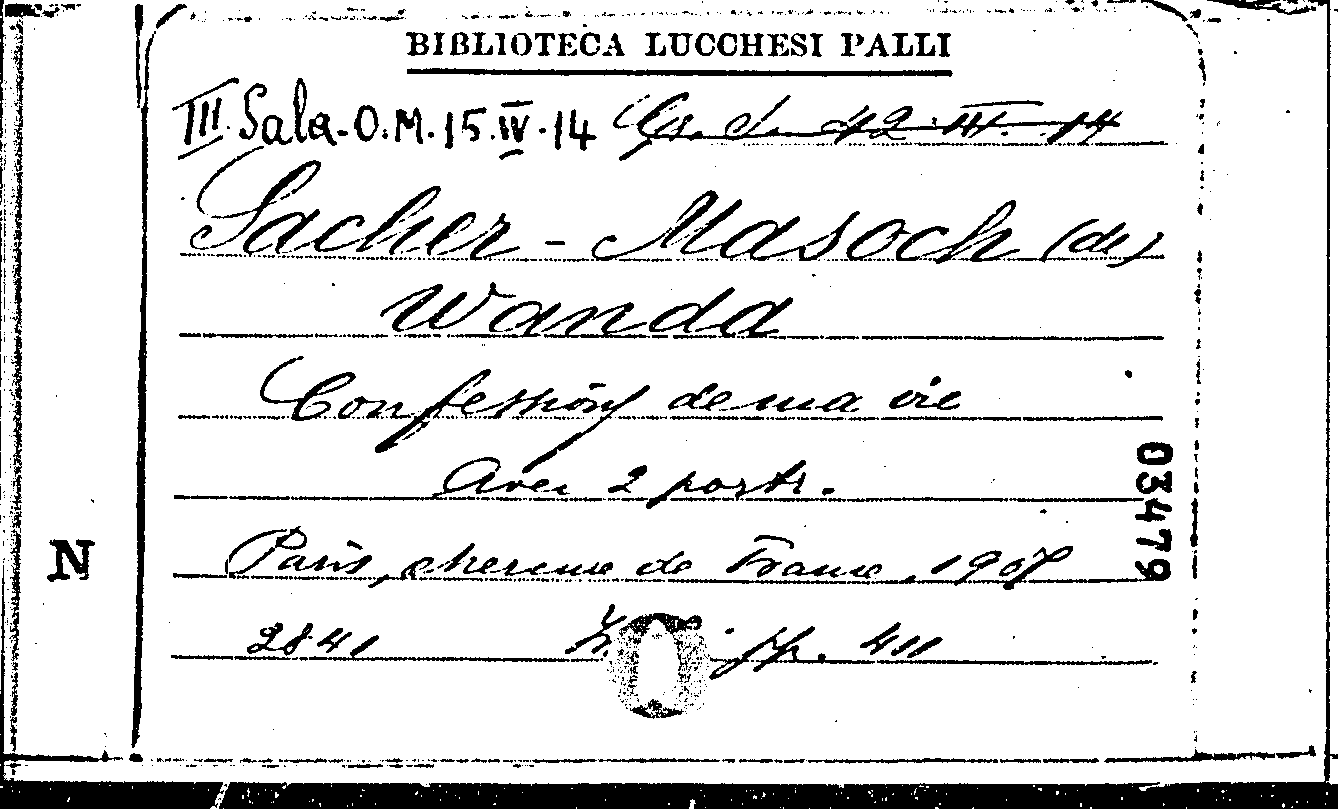 BIBLIOTECA LUCCHESI PALLI
III Sala-O.M.15.IV.14 42 III. 14
Sacher-Masoch (de)
Wanda
Confessions de ma vie
Avec 2 portr.
Paris, Mercure de France, 1907
2841 pp. 411
03479
N